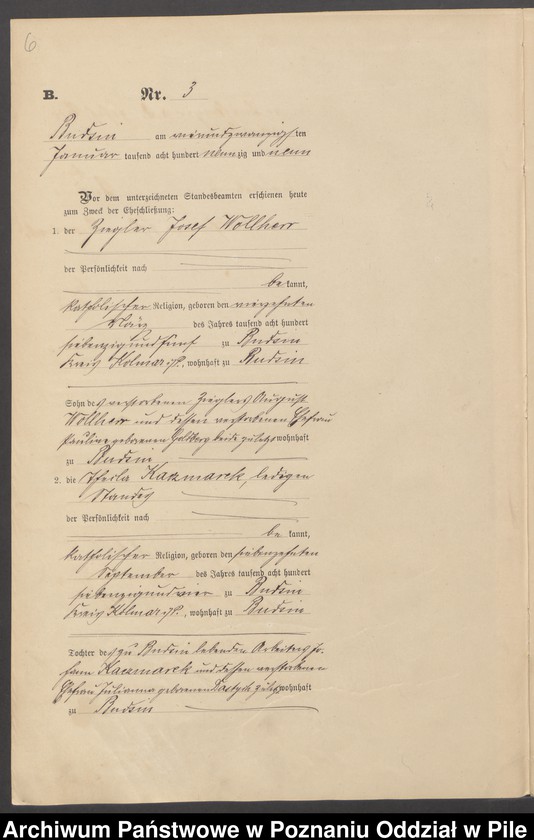 6
B. Nr. 3
Budsin am neunundzwanzigsten
Januar tausend acht hundert neunzig und neun
Vor dem unterzeichneten Standesbeamten erschienen heute
zum Zweck der Eheschließung:
1. der Ziegler Josef Wollherr
der Persönlichkeit nach
bekannt,
katholischer Religion, geboren den vierzehnten
März des Jahres tausend acht hundert
siebenzig und fünf zu Budsin
Kreis Kolmar i/P., wohnhaft zu Budsin
Sohn des verstorbenen Zieglers August
Wollherr und dessen verstorbenen Ehefrau
Pauline geborenen Goldberg beide zuletzt wohnhaft
zu Budsin
2. die Thecla Kaczmarek, ledigen
Standes
der Persönlichkeit nach
bekannt,
katholischer Religion, geboren den siebenzehnten
September des Jahres tausend acht hundert
siebenzig und vier zu Budsin
Kreis Kolmar i/P., wohnhaft zu Budsin
Tochter des zu Budsin lebenden Arbeiters Jo-
hann Kaczmarek und dessen verstorbenen
Ehefrau Julianna geborenen zuletzt wohnhaft
zu Budsin
Archiwum Państwowe w Poznaniu Oddział w Pile